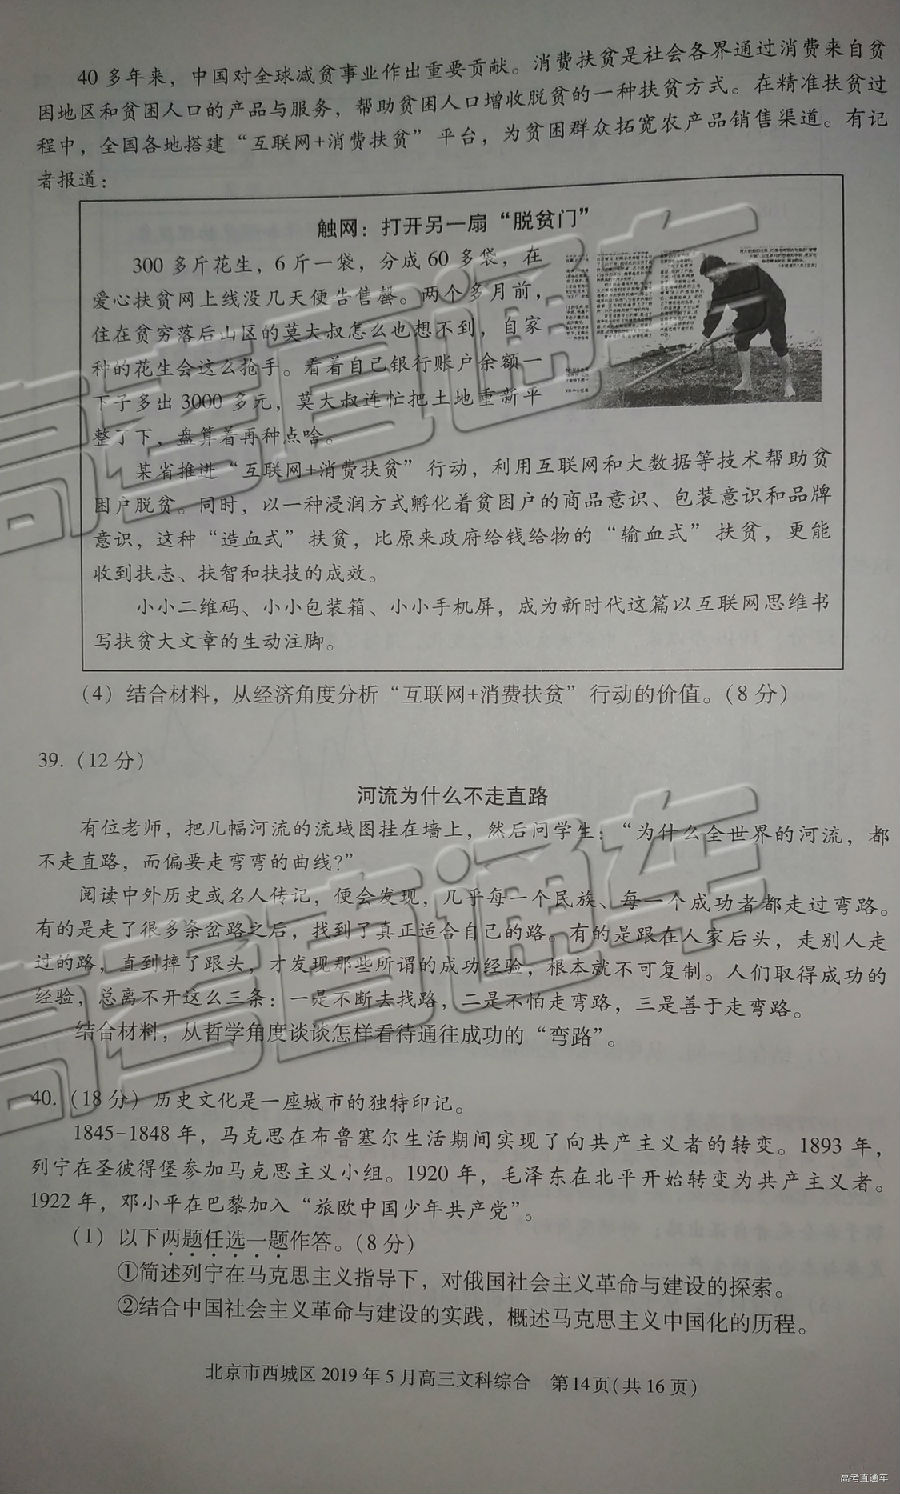 40 多年来，中国对全球减贫事业作出重要贡献。消费扶贫是社会各界通过消费来自贫
困地区和贫困人口的产品与服务，帮助贫困人口增收脱贫的一种扶贫方式。在精准扶贫过
程中，全国各地搭建“互联网+消费扶贫”平台，为贫困群众拓宽农产品销售渠道。有记
者报道：
触网：打开另一扇“脱贫门”
300 多斤花生，6 斤一袋，分成 60 多袋，在
爱心扶贫网上线没几天便告售罄。两个多月前，
住在贫穷落后山区的莫大叔怎么也想不到，自家
种的花生会这么抢手。看着自己银行账户余额一
下子多出 3000 多元，莫大叔连忙把土地重新平
整了下，盘算着再种点啥。
某省推进“互联网+消费扶贫”行动，利用互联网和大数据等技术帮助贫
困户脱贫。同时，以一种浸润方式孵化着贫困户的商品意识、包装意识和品牌
意识，这种“造血式”扶贫，比原来政府给钱给物的“输血式”扶贫，更能
收到扶志、扶智和扶技的成效。
小小二维码、小小包装箱、小小手机屏，成为新时代这篇以互联网思维书
写扶贫大文章的生动注脚。
（4）结合材料，从经济角度分析“互联网+消费扶贫”行动的价值。（8 分）
39.（12 分）
河流为什么不走直路
有位老师，把几幅河流的流域图挂在墙上，然后问学生：“为什么全世界的河流，都
不走直路，而偏要走弯弯的曲线？”
阅读中外历史或名人传记，便会发现，几乎每一个民族、每一个成功者都走过弯路。
有的是走了很多茶岔路之后，找到了真正适合自己的路。有的是跟在人家后头，走别人走
过的路，直到摔了跟头，才发现那些所谓的成功经验，根本就不可复制。人们取得成功的
经验，总离不开这么三条：一是不断去找路，二是不怕走弯路，三是善于走弯路。
结合材料，从哲学角度谈谈怎样看待通往成功的“弯路”。
40.（18 分）历史文化是一座城市的独特印记。
1845-1848 年，马克思在布鲁塞尔生活期间实现了向共产主义者的转变。1893 年，
列宁在圣彼得堡参加马克思主义小组。1920 年，毛泽东在北平开始转变为共产主义者。
1922 年，邓小平在巴黎加入“旅欧中国少年共产党”。
（1）以下两题任选一题作答。（8 分）
①简述列宁在马克思主义指导下，对俄国社会主义革命与建设的探索。
②结合中国社会主义革命与建设的实践，概述马克思主义中国化的历程。
北京市西城区 2019 年 5 月高三文科综合 第 14 页（共 16 页）
高考直通车
高考直通车
高考直通车